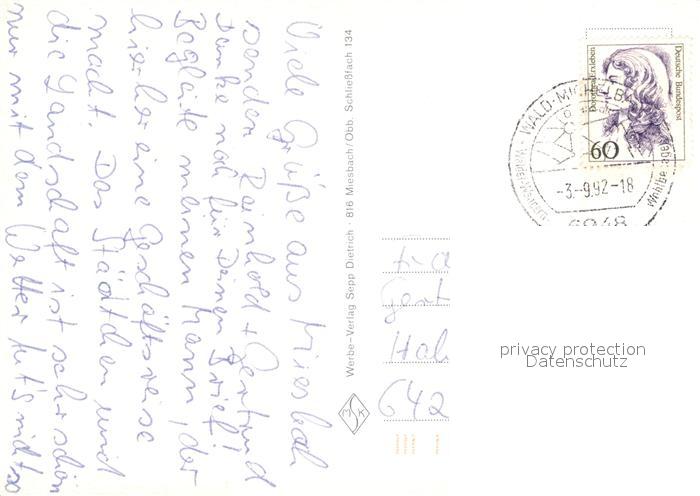 Viele Grüße aus Miesbach
senden Reinhold + Gertrud
Danke noch für Deinen Brief!
Begleite meinen Mann, der
hierher eine Geschäftsreise
macht. Das Städtchen und
die Landschaft ist sehr schön
nur mit dem Wetter tut's nicht so
Werbe-Verlag Sepp Dietrich - 816 Miesbach/Obb. Schließfach 134
Deutsche Bundespost
Dorothea Erxleben
60
WALD-MICHELB
-3.-9.92-18
6948
Gert
642
privacy protection
Datenschutz